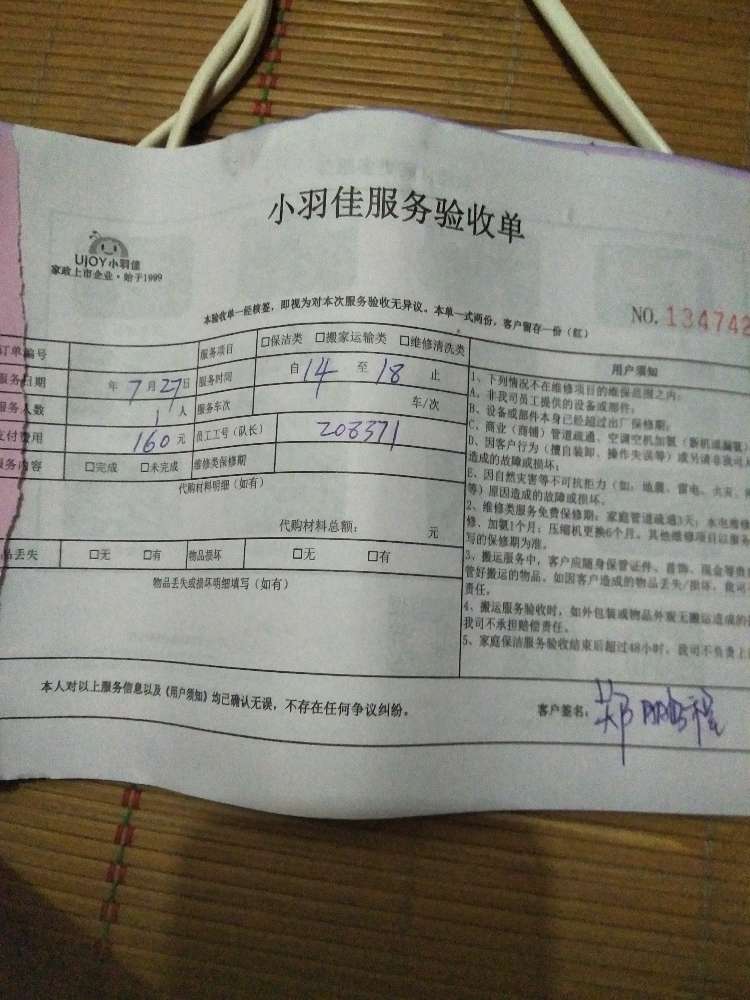 小羽佳服务验收单
UJOY小羽佳
家政上市企业·始于1999
本验收单一经核签,即视为对本次服务验收无异议。本单一式两份,客户留存一份(红)
NO.134742
订单编号 服务项目 □保洁类 □搬家运输类 □维修清洗类
服务日期 年 7 月 27 日 服务时间 自 14 至 18 止
服务人数 1 人 服务车次 车/次
支付费用 160 元 员工工号(队长) 208371
服务内容 □完成 □未完成 维修类保修期
代购材料明细(如有)
代购材料总额: 元
物品丢失 □无 □有 物品损坏 □无 □有
物品丢失或损坏明细填写(如有)
用户须知
1、下列情况不在维修项目的维保范围之内:
A、非我司员工提供的设备或部件;
B、设备或部件本身已经超过出厂保修期;
C、商业(商铺)管道疏通、空调空机加氨(新机或漏氨)
D、因客户行为(擅自装卸、操作失误等)或另请非我司人
造成的故障或损坏;
E、因自然灾害等不可抗拒力(如:地震、雷电、火灾、
等)原因造成的故障或损坏。
2、维修类服务免费保修期:家庭管道疏通3天;水电维修
修、加氨1个月;压缩机更换6个月。其他维修项目以服务
写的保修期为准。
3、搬运服务中,客户应随身保管证件、首饰、现金等贵
管好搬运的物品。如因客户造成的物品丢失/损坏,我司
责任。
4、搬运服务验收时,如外包装或物品外观无搬运造成的
我司不承担赔偿责任。
5、家庭保洁服务验收结束后超过48小时,我司不负责上
本人对以上服务信息以及《用户须知》均已确认无误,不存在任何争议纠纷。
客户签名: 郑鹏程